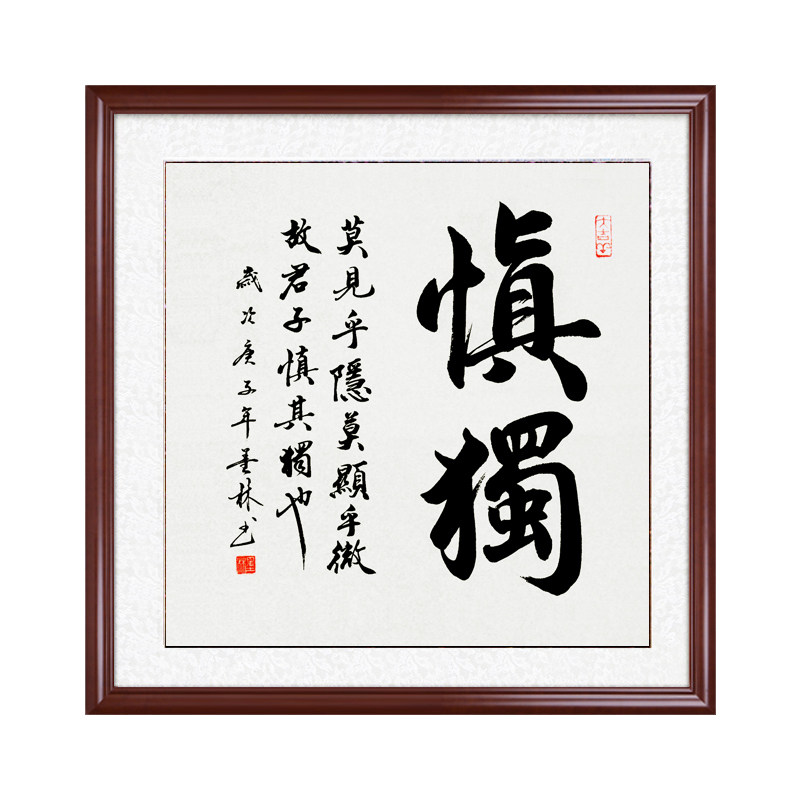 慎獨
莫見乎隱莫顯乎微
故君子慎其獨也
歲次庚子年墨林書
大吉